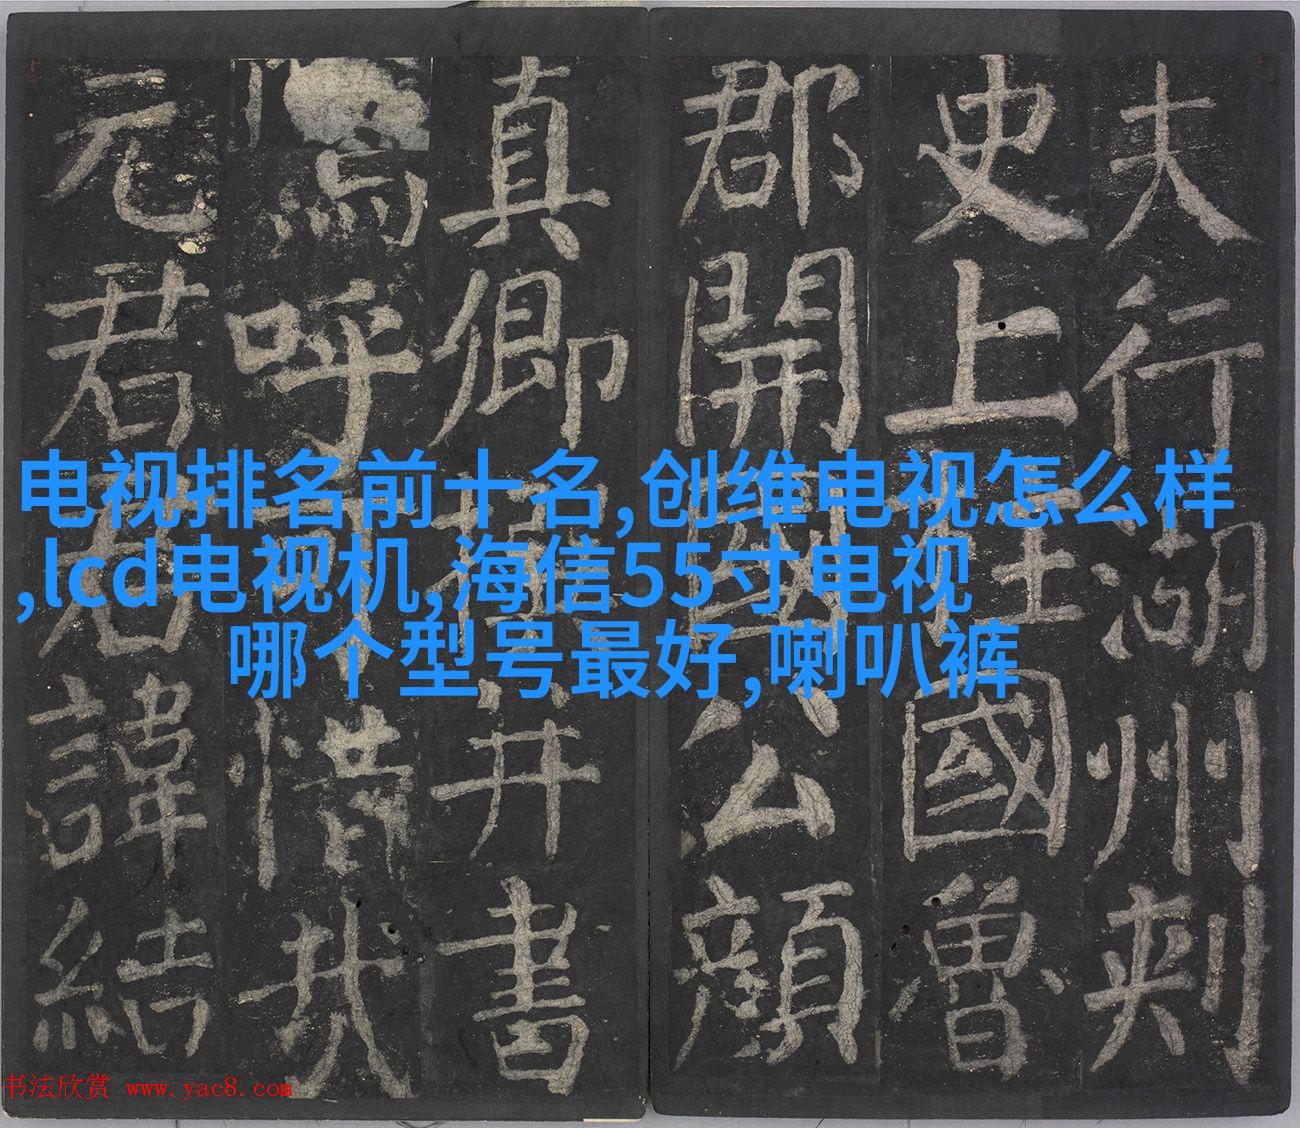 夫行湖州刾
史上柱國魯
郡開國公顏
真卿撰并書
嗚呼可惜哉
元君君諱結
电视排名前十名,创维电视怎么样
,lcd电视机,海信55寸电视
哪个型号最好,喇叭裤
书法欣赏 www.yac8.com